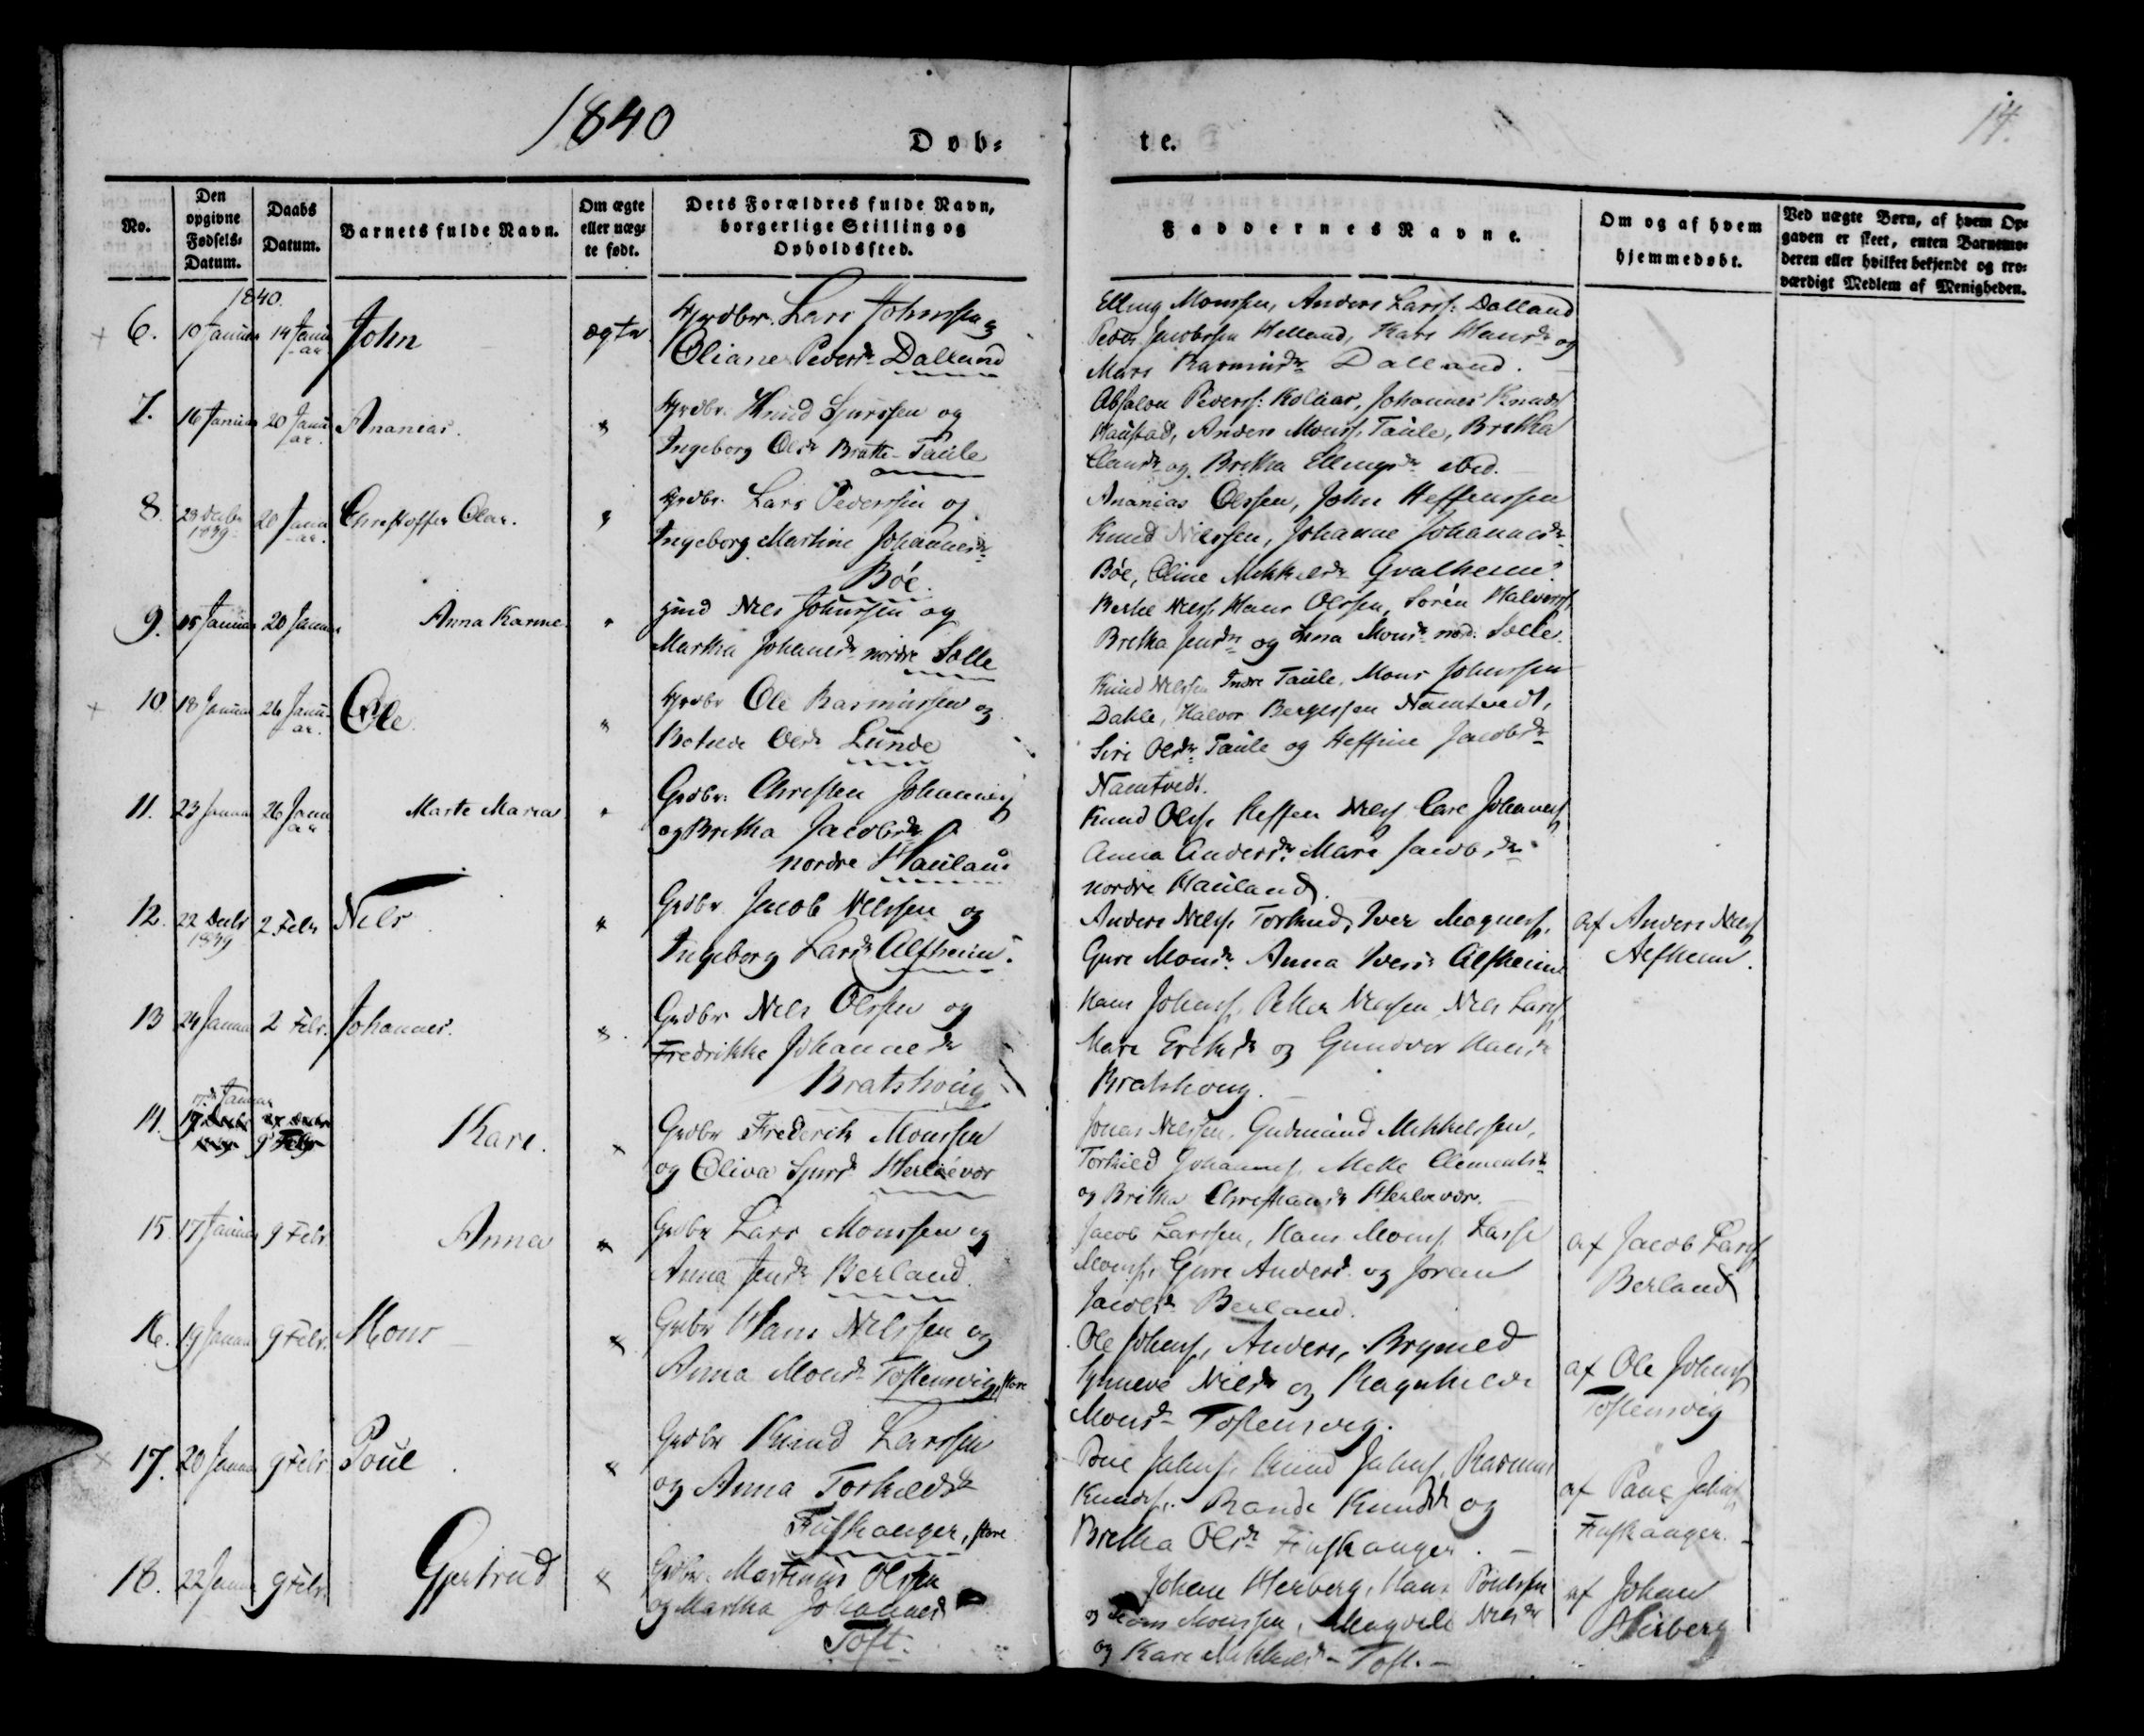 1840
14.
Døb=
te.
No.
Den opgivne Fødsels= Datum.
Daabs Datum.
Barnets fulde Navn.
Om ægte eller uæg= te født.
Dets Forældres fulde Navn, borgerlige Stilling og Opholdssted.
Faddernes Navne.
Om og af hvem hjemmedøbt.
Ved uægte Børn, af hvem Op=
gaven er skeet, enten Barnemo=
deren eller hvilket bekjendt og tro=
værdigt Medlem af Menigheden.
1840.
6. 10 Januar 14 Janu-ar John ægte
Lars Johnsen og
Oliane Pedersdr Dalland
Elling Monssen, Anders Larss: Dalland
Peder Jacobssen Helland, Kari Hansdr og
Mari Rasmusdr Dalland.
7. 16 Januar 20 Janu-ar. Ananias.
Knud Sjurssen og
Ingeborg Olsdr Bratte-Taule
Absalon Peders: Kolaas, Johannes Knuds
Haustad, Anders Monss. Taule, Britha
og Britha Ellingsdr ibid.
8. 23 Decbr 1839 20 Janu-ar. Christoffer Olai.
Lars Pederssen og
Ingeborg Martine Johannesdr
Böe.
Ananias Olssen, John Steffenssen
Knud Nilssen, Johanne Johannesdr
Böe, Oline Mikkelsdr Gvalheim.
9. 15 Januar 20 Januar Anna Karine.
Nils Johnssen og
Martha Johannesdr nordre Sælle
Hans Olssen, Sören Halvorss.
Britha Jensdr og Anna Monsdr nord. Sælle.
10. 18 Januar 26 Janu-ar. Ole.
Ole Rasmussen og
Botilde Olsdr Lunde
Knud Nilssen Indre Taule, Mons Johnssen
Dahle, Halvor Bergessen Namtvedt,
Siri Olsdr Taule og Steffine Jacobsdr
Namtvedt.
11. 23 Januar 26 Janu-ar Marte Maria
Grdbr. Christen Johanness
og Britha Jacobsdr
nordre Hauland
Knud Olss. Steffen Nilss Johanness
Anna Andersdr Mari Jacobsdr
nordre Hauland.
12. 22 Decbr 1839 2 Febr Nils
Grdbr Jacob Nilssen og
Ingeborg Larsdr Alfheim.
Anders Nilss. Torkind, Iver Magness.
Guro Monsdr. Anna Iversdr Alfheim
af Anders Nilss
Alfheim.
13 24 Januar 2 Febr. Johannes.
Grdbr Nils Olssen og
Fredrikke Johannesdr
Bratshoug
Hans Johnss. Petter Nilssen Nils Larss
Mari Eriksdr og Gundvor Hansdr
Bratshoug.
14. 17de Januar 9 Febr Kari.
Grdbr Frederik Monssen
og Oliva Sjursdr Herlevær
Jonas Nilssen, Gudmund Mikkelssen,
Torkild Johanness. Mette Clementsdr
og Britha Christiansdr Herlevær.
15. 17 Januar 9 Febr Anna
Grdbr Lars Monssen og
Anna Jensdr Berland.
Jacob Larssen, Hans Monss. Lasse
Monss. Guro Andersd. og Joran
Jacobsdr Berland.
af Jacob Larss
Berland
16. 19 Januar 9 Febr. Mons
Grdbr Hans Nilssen og
Anna Monsdr Tostensvig, store
Ole Johnss, Anders, Brynild
Gunneva Nilsdr og Ragnhilda
Monsdr Tostensvig.
af Ole Johnss
Tostensvig
17. 20 Januar 9 Febr Poul.
Grdbr Knud Larssen
og Anna Torkildsdr
Fuskanger, store
Poul Johnss. Knud Johnss. Rasmus
Knudss. Rande Knudsdr og
Britha Olsdr Fuskanger.
af Poul Johnss
Fuskanger.
18. 22 Januar 9 Febr. Gjertrud
Grdbr. Martinus Olssen
og Martha Johannesdr
Toft.
Johan Herberg, Hans Poulssen
og Monssen, Magrete Nilsdr
og Kari Mikkelsdr Toft.
af Johan
Herberg